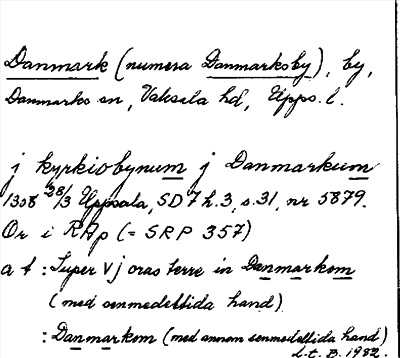 Danmark (numera Danmarksby), by,
Danmarks sn, Vaksala hd, Upps. l.
j kyrkiobynum j Danmarkum
1308 28/3 Uppsala, SD 7 h.3, s.31, nr 5879.
Or i RAp (= SRP 357)
a t : Super V j oras terre in Danmarkom
(med senmedeltida hand)
: Danmarkom (med annan senmedeltida hand)
L.t. B. 1982.